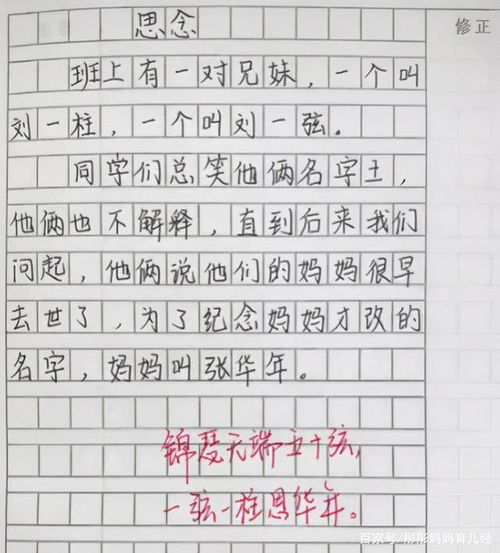 思念
修正
班上有一对兄妹，一个叫
刘一柱，一个叫刘一弦。
同学们总笑他俩名字土，
他俩也不解释，直到后来我们
问起，他俩说他们的妈妈很早
去世了，为了纪念妈妈才改的
名字，妈妈叫张华年。
锦瑟无端五十弦，
一弦一柱思华年。
百家号/彤彤妈妈育儿经